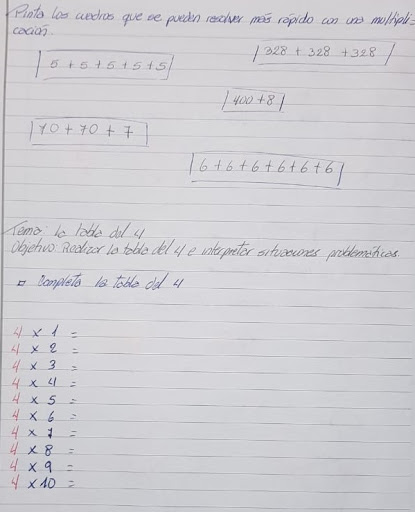 Pinta los cuadros que se pueden resolver más rápido con una multipli=
cación.
328 + 328 + 328
5 + 5 + 5 + 5 + 5
400 + 8
70 + 70 + 7
6 + 6 + 6 + 6 + 6 + 6
Tema: la tabla del 4
Objetivo: Realizar la tabla del 4 e interpretar situaciones problemáticas.
Completa la tabla del 4
4 x 1 =
4 x 2 =
4 x 3 =
4 x 4 =
4 x 5 =
4 x 6 =
4 x 7 =
4 x 8 =
4 x 9 =
4 x 10 =